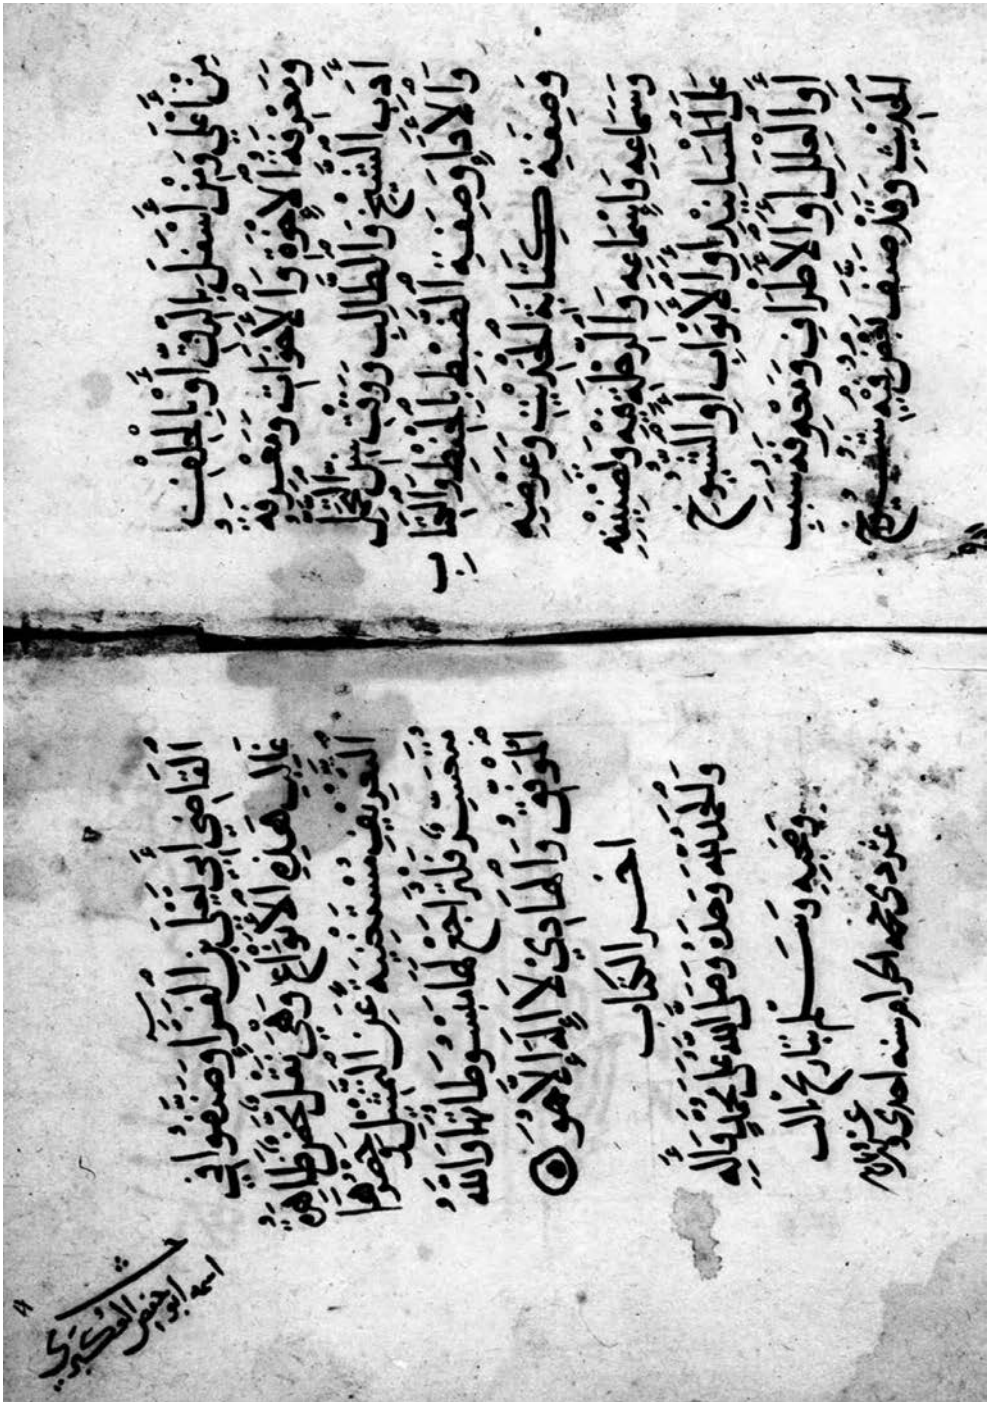 مِنْ أَعْلَى وَمِنْ أَسْفَلَ بِالرِّقِّ أَوْ بِالْحِلْفِ
وَمَعْرِفَةُ الإِخْوَةِ وَالأَخَوَاتِ وَمَعْرِفَةُ
أَدَبِ الشَّيْخِ وَالطَّالِبِ وَوَقْتِ سِنِّ التَّحَمُّلِ
وَالأَدَاءِ وَصِفَةِ الضَّبْطِ بِالْحِفْظِ وَالكِتَابِ
وَصِفَةِ كِتَابَةِ الْحَدِيثِ وَعَرْضِهِ
وَسَمَاعِهِ وَإِسْمَاعِهِ وَالرِّحْلَةِ فِيهِ وَتَصْنِيفِهِ
عَلَى الْمَسَانِيدِ أَوِ الأَبْوَابِ أَوِ الشُّيُوخِ
أَوِ الْعِلَلِ أَوِ الأَطْرَافِ وَمَعْرِفَةُ سَبَبِ
الْحَدِيثِ وَقَدْ صَنَّفَ بَعْضُ فِيهِ شُيُوخِ
الْقَاضِي أَبِي يَعْلَى بْنِ الْفَرَّاءِ وَصَنَّفُوا فِي
غَالِبِ هَذِهِ الأَنْوَاعِ وَهِيَ نَقْلٌ مَحْضٌ ظَاهِرَةُ
التَّعْرِيفِ مُسْتَغْنِيَةٌ عَنِ التَّمْثِيلِ وَحَصْرُهَا
مُتَعَسِّرٌ فَلْتُرَاجَعْ لَهَا مَبْسُوطَاتُهَا وَاللهُ
الْمُوَفِّقُ وَالْهَادِي لَا إِلَهَ إِلَّا هُوَ
اخر الكتاب
وَالحمد لله وحده وصلى الله على محمد وَآله
وصحبه وَسلم بتاريخ ثالث
عشر ذي حجة الحرام سنه احدى
اسمه ابو حفص العكبري